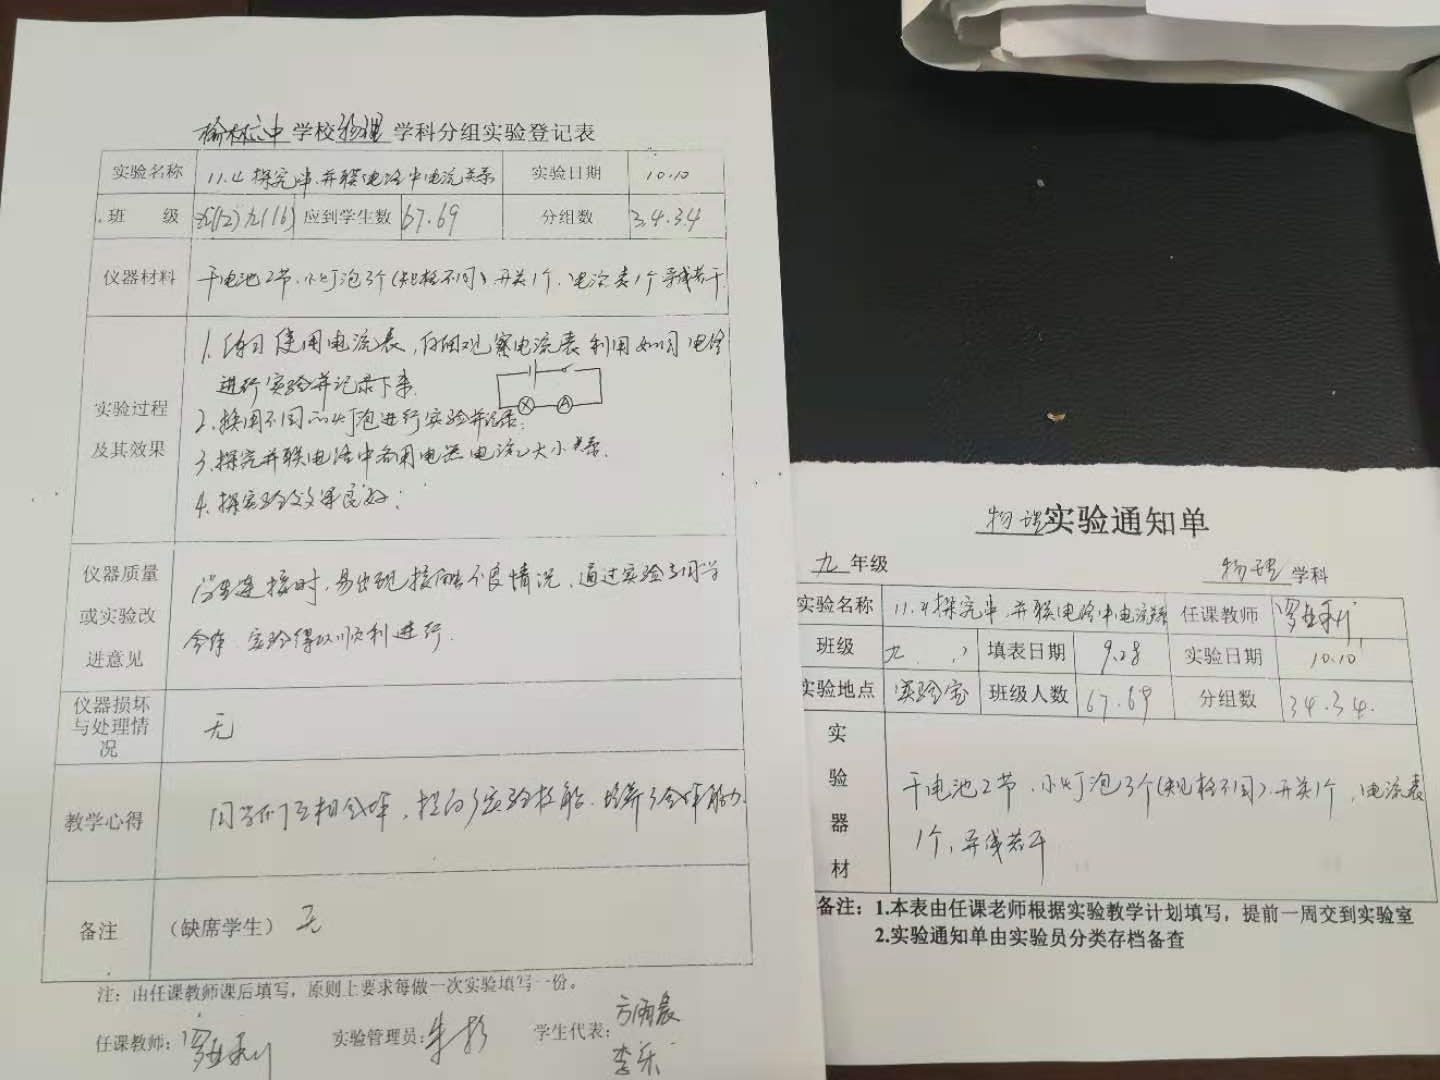 榆林六中学校物理学科分组实验登记表
实验名称 11.4探究串、并联电路中电流关系 实验日期 10.10
班 级 九(12) 九(16) 应到学生数 67.69 分组数 34.34
仪器材料 干电池2节、小灯泡3个(规格不同)、开关1个、电流表1个 导线若干
1.练习使用电流表,仔细观察电流表 利用如图电路
进行实验并记录下来.
实验过程
及其效果
2.换用不同的灯泡进行实验并记录;
A
3.探究并联电路中各用电器电流大小关系.
4.实验效果良好;
仪器质量
或实验改
进意见
连接时,易出现接触不良情况,通过实验与同学
合作,实验得以顺利进行.
仪器损坏
与处理情
况
无
教学心得 同学们互相合作,提高了实验技能,培养了合作能力.
备注 (缺席学生) 无
注:由任课教师课后填写,原则上要求每做一次实验填写一份。
任课教师: 实验管理员: 学生代表:
物理实验通知单
九年级 物理学科
实验名称 11.4探究串、并联电路中电流 任课教师
班级 九 填表日期 9.28 实验日期 10.10
实验地点 实验室 班级人数 67.69 分组数 34.34.
实
验
器
材
干电池2节、小灯泡3个(规格不同)、开关1个,电流表
1个,导线若干
备注:1.本表由任课老师根据实验教学计划填写,提前一周交到实验室
2.实验通知单由实验员分类存档备查